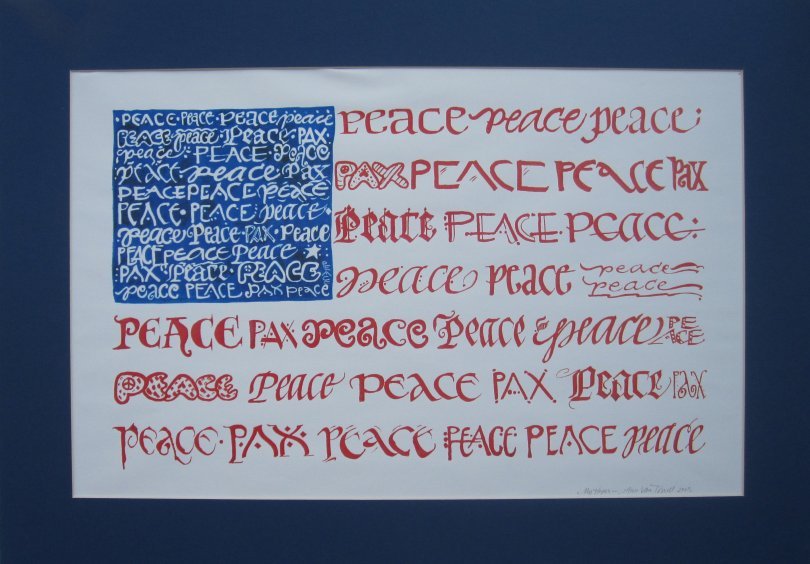 PEACE · PEACE · PEACE peace
PEACE · peace · Peace · PAX
peace · PEACE · Peace
PEACE · peace · PAX
PEACE PEACE PEACE
PEACE · PEACE · peace ·
peace Peace PAX · Peace
PEACE PEACE Peace
PAX · Peace · PEACE
peace PEACE PAX peace
Peace peace peace :
PAX PEACE PEACE PAX
Peace PEACE PEACE
peace peace peace peace
PEACE PAX Peace Peace & peace PEACE
PEACE Peace PEACE PAX Peace PAX
PEACE · PAX PEACE PEACE PEACE peace